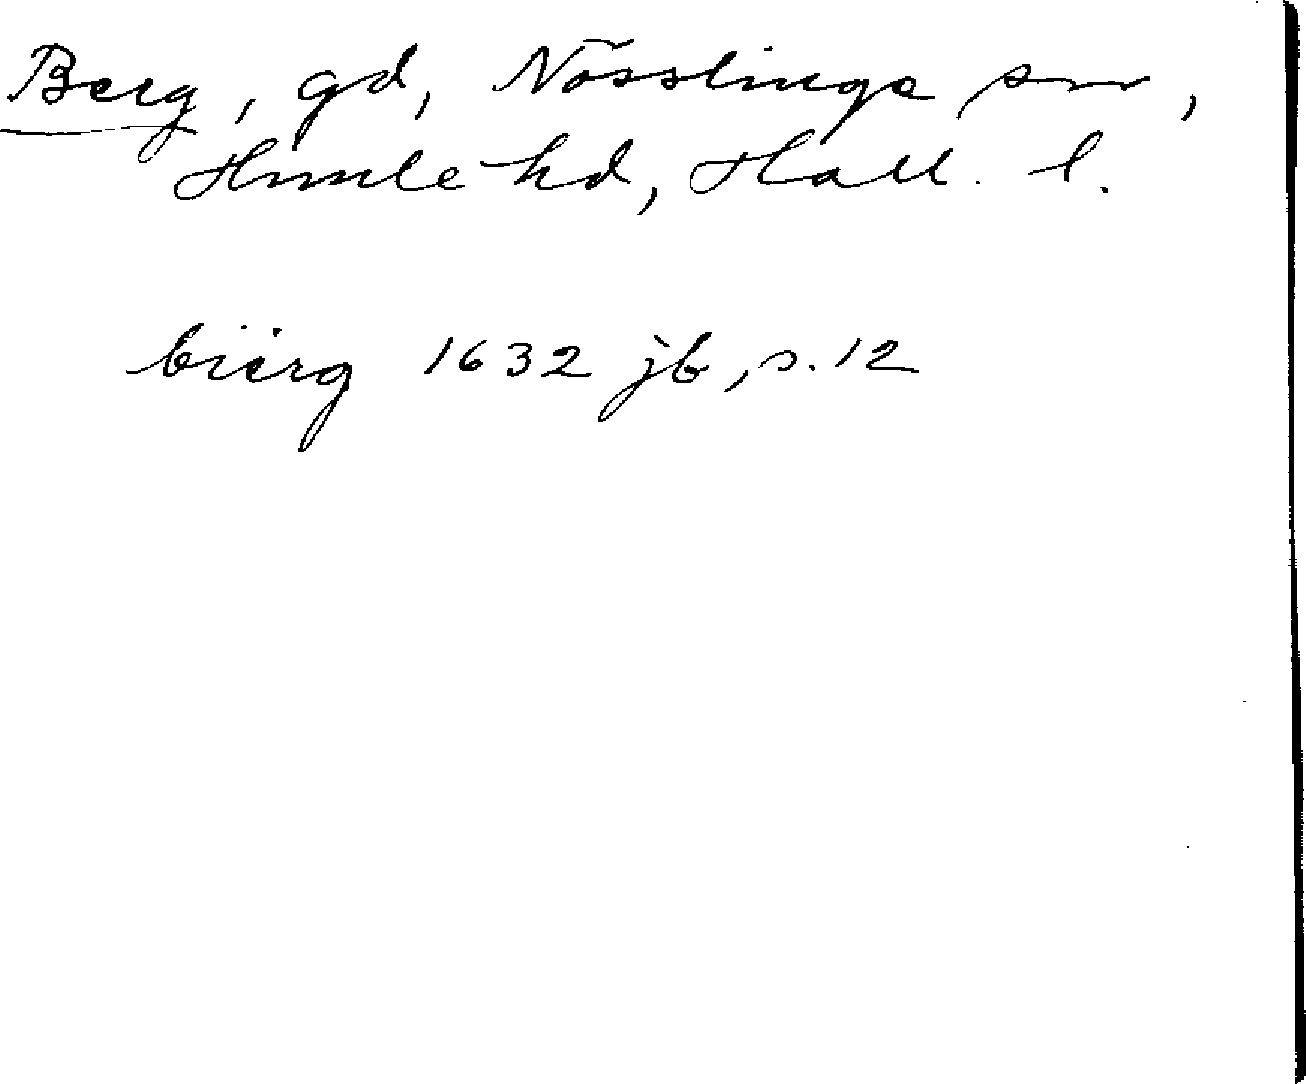 Berg, gd, Nösslinge sn,
Himle hd, Hall. l.
bïerg 1632 jb, s. 12